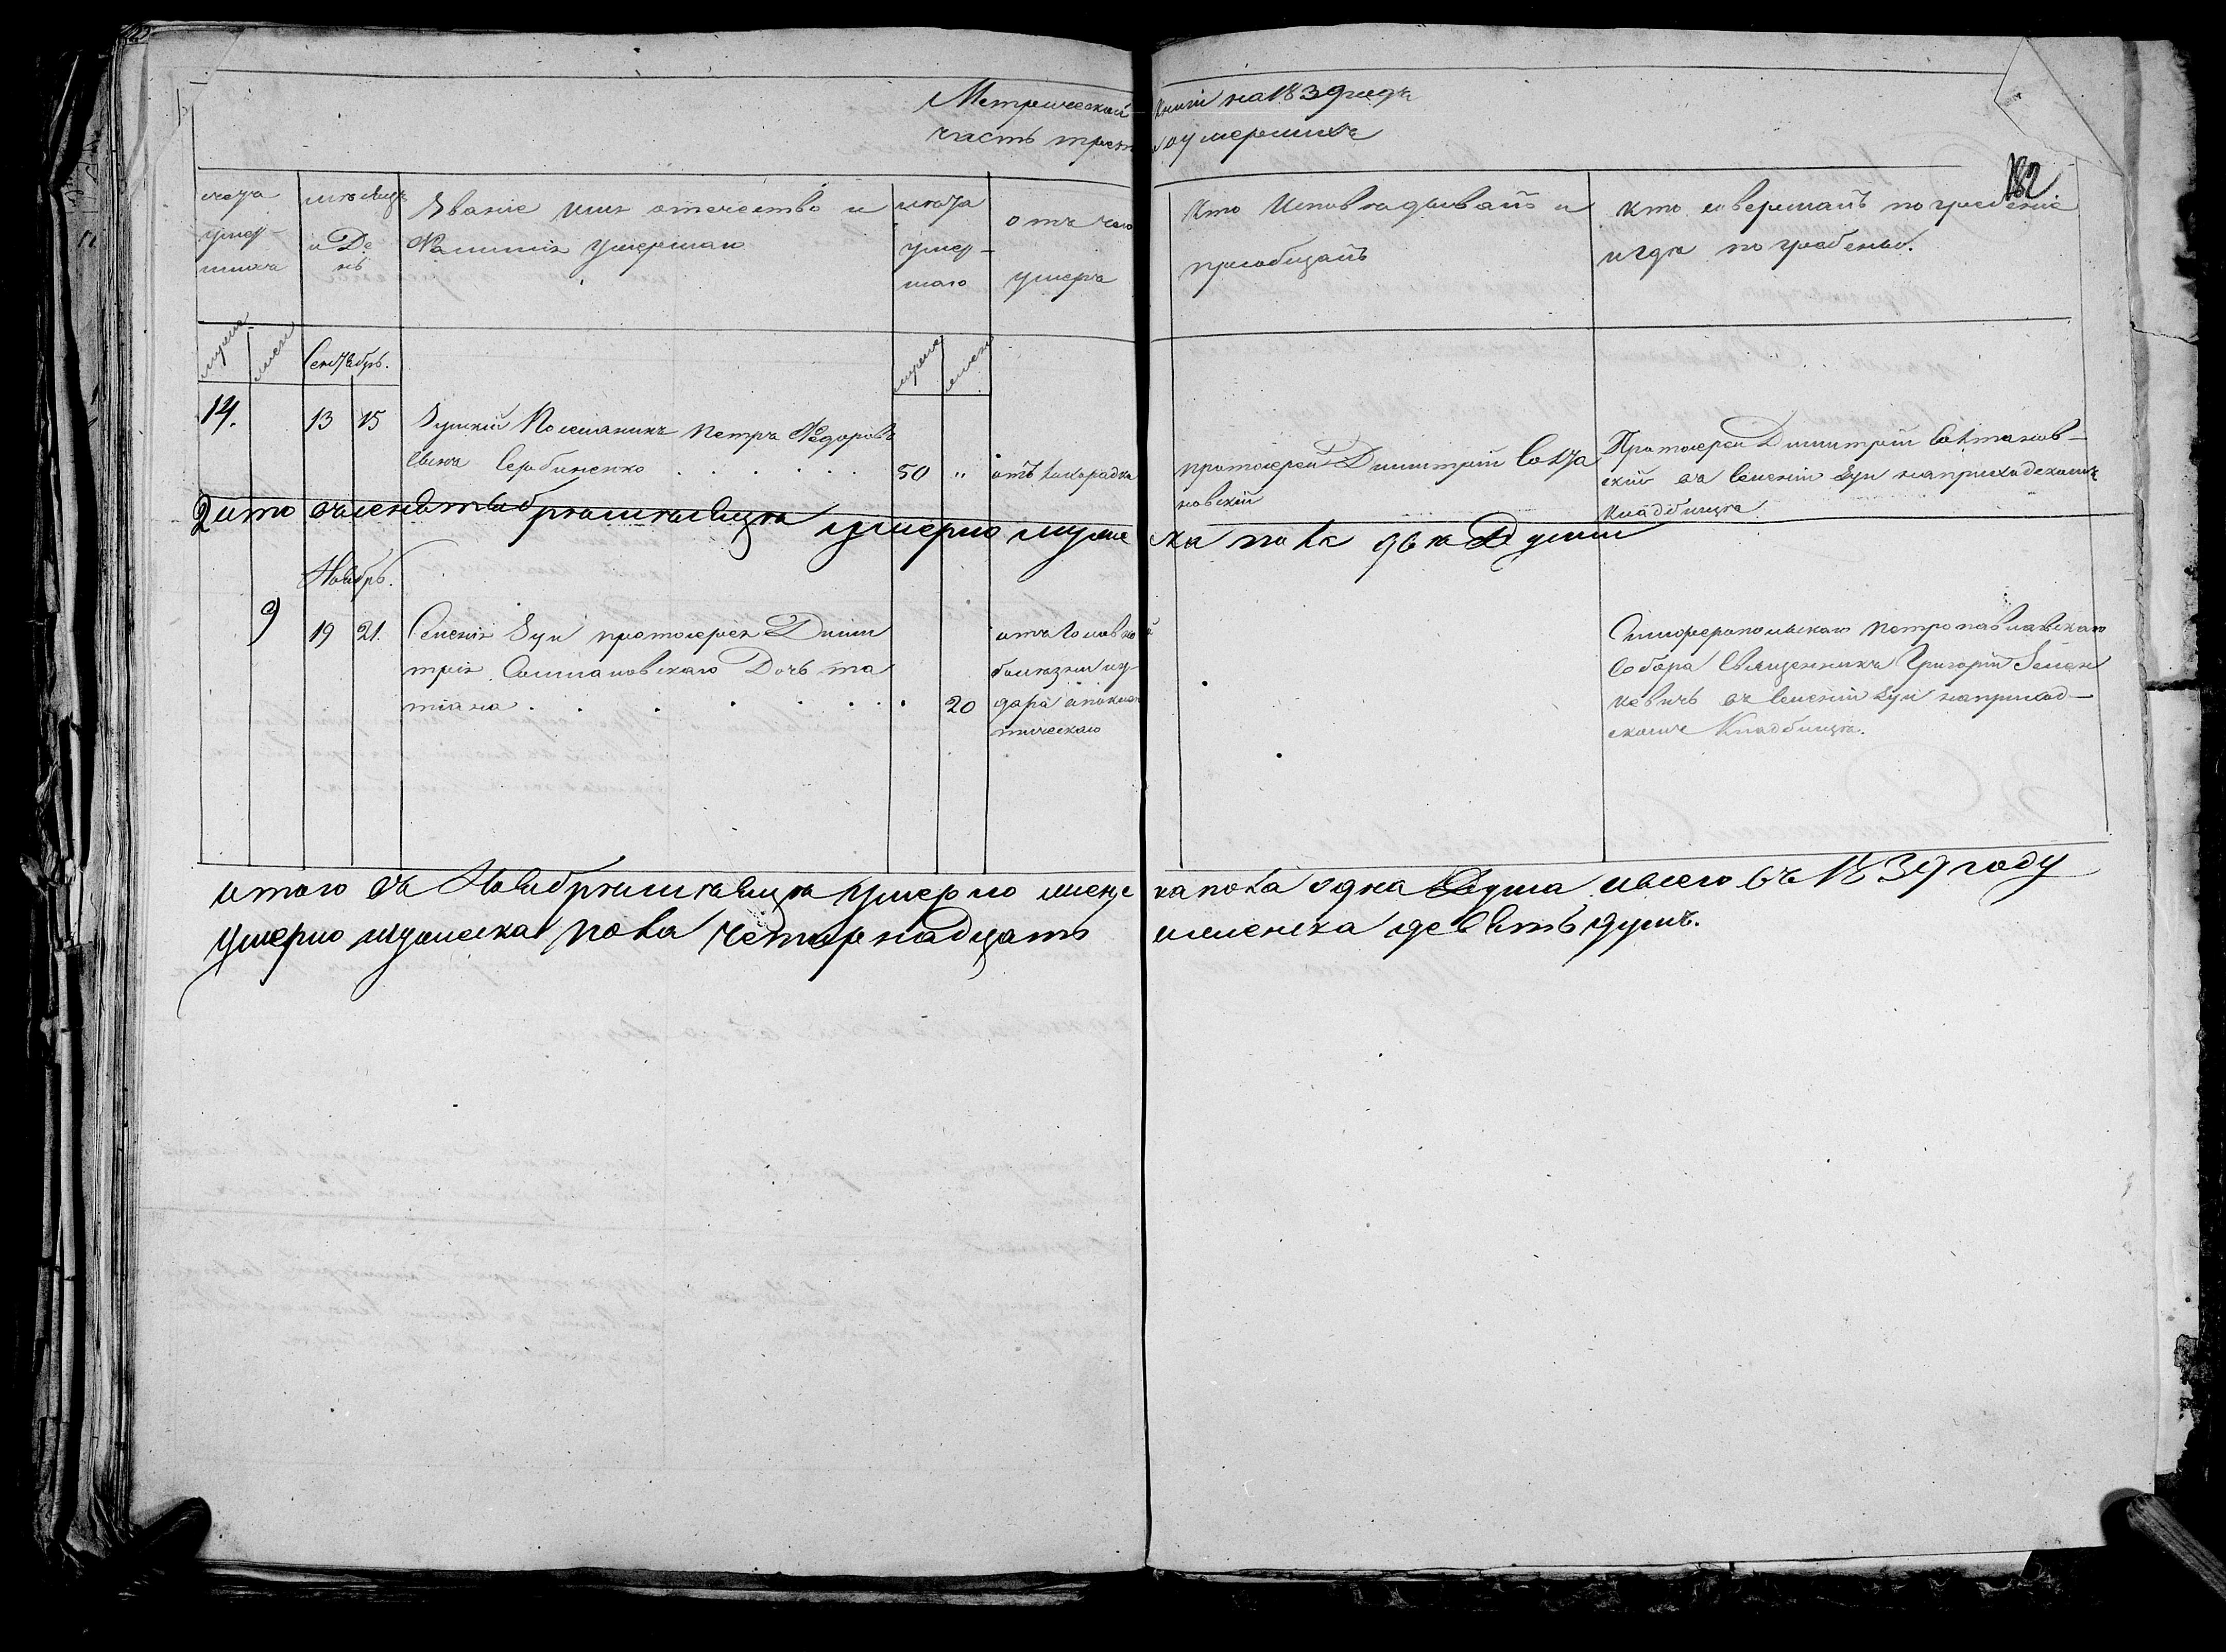 Метрической книги на 1839 годъ
часть третя о умершихъ
182
счетъ умер-шихъ
мѣсяцъ и Де нь
Званіе имя отечество и Фамилія Умершаго
лѣта умер-шаго
отъ чего умеръ
Кто Исповѣдывалъ и пріобщалъ
Кто совершалъ погребеніе и гдѣ погребены.
муже
женс
Сентябрь.
муже
женс
14.
13
15
Поселянинъ Петръ Федоровъ
Сынъ Сербиненко
50
"
отъ лихорадки
протоіерей Димитрій Солта
новскій
Протоіерей Димитрій Солтанов-
скій въ селеніи Зуи на приходскомъ
кладбищѣ
итого въ сентябрѣ мѣсяцѣ умерло муже ска пола двѣ Души
Ноябрь.
9
19
21.
Селенія Зуи протоіерея Дими
трія Солтановскаго Дочь та
тіана
20
отъ головной
болѣзни уд
дара апоплек
тическаго
Симферопольскаго петропавловскаго
Собора Священникъ Григорій
въ селеніи Зуи на приход-
скомъ Кладбищѣ.
итого въ Ноябрѣ мѣсяцѣ умерло женс ка пола одна Душа. ивсего въ 1839 году
умерло мужеска пола четырнадцать иженска девять душъ.